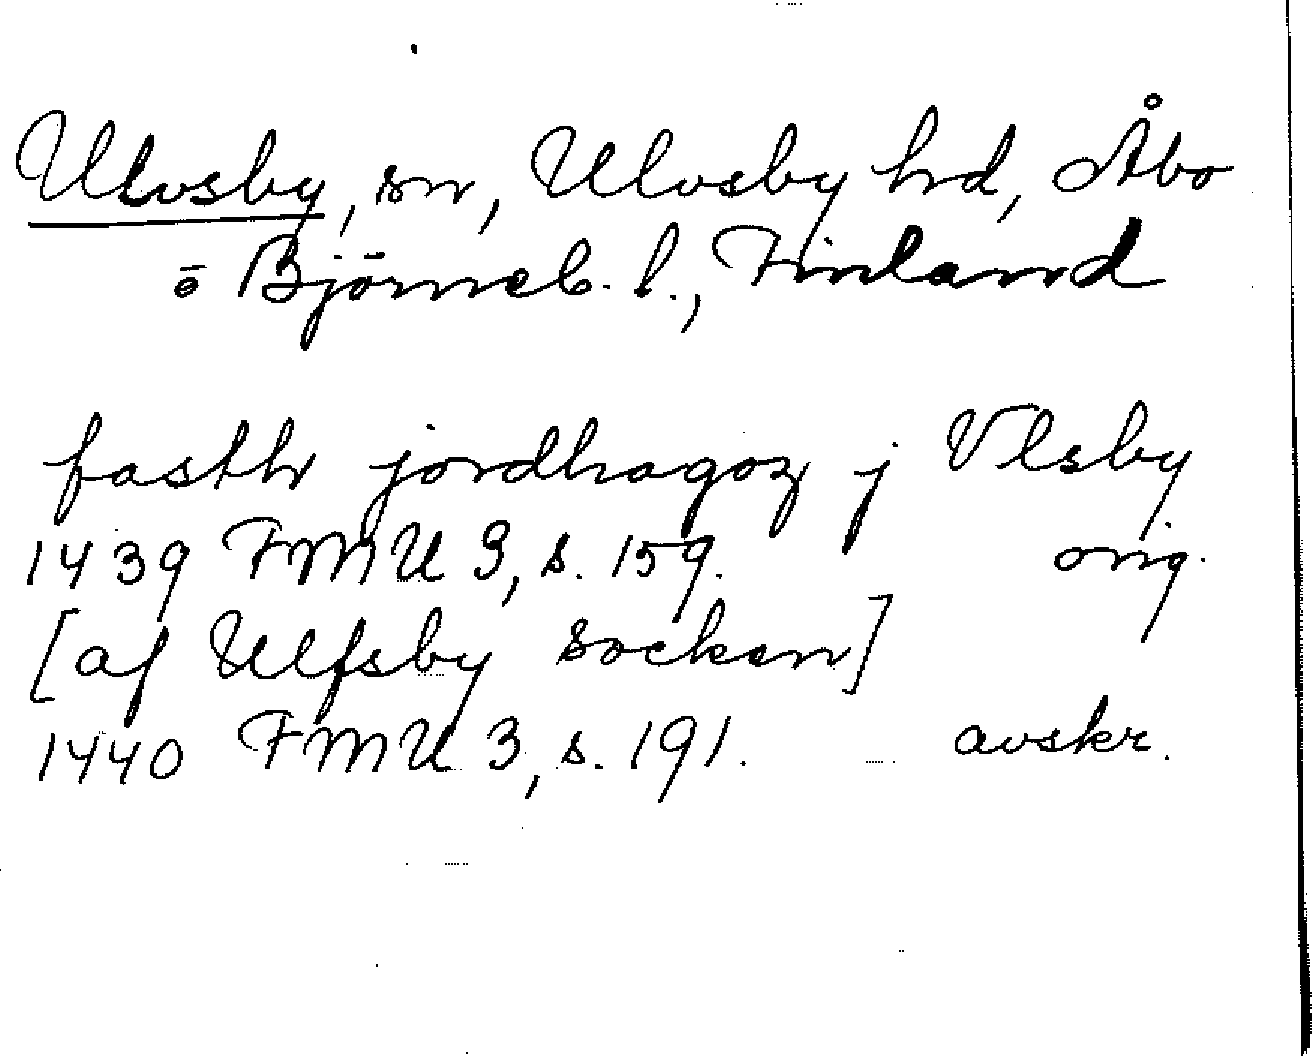 Ulvsby, sn, Ulvsby hd, Åbo
o Björneb. l., Finland
fasth jordhagoz j Vlsby
1439 FMU 3, s. 159. orig.
[af Ulfsby socken]
1440 FMU 3, s. 191. avskr.